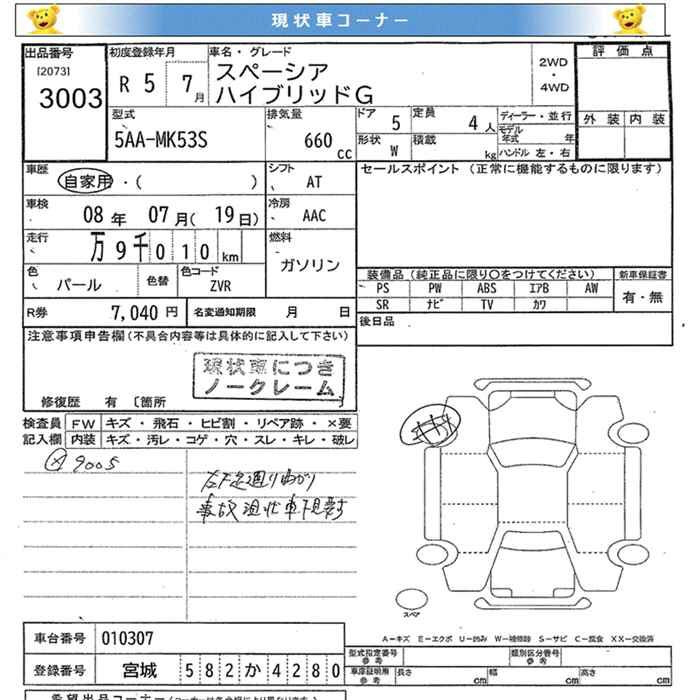 現状車コーナー
出品番号 初度登録年月 車名・グレード 評価点
[2073] 3003 R 5 7月 スペーシア 2WD
ハイブリッドG ・ 4WD
型式 排気量 ドア 定員 ディーラー・並行 外装 内装
5AA-MK53S 660 cc 5 4人 モデル年式 年
形状 W 積載 kg ハンドル 左・右
車歴 シフト セールスポイント (正常に機能するものに限ります)
自家用・( ) AT
車検 冷房
08年 07月( 19日) AAC
走行 燃料
万9千010km ガソリン
色 色替 色コード 装備品(純正品に限り〇をつけてください) 新車保証書
パール ZVR PS PW ABS エアB AW 有・無
SR ナビ TV カワ
R券 7,040円 名変通知期限 月 日 後日品
注意事項申告欄(不具合内容等は具体的に記入して下さい)
現状車につき
ノークレーム
修復歴 有 〔箇所
検査員 FW キズ・飛石・ヒビ割・リペア跡・×要
記入欄 内装 キズ・汚レ・コゲ・穴・スレ・キレ・破レ
9005
事故現状車下見要す
スペア
A－キズ E－エクボ U－凹み W－補修跡 S－サビ C－腐食 XX－交換済
車台番号 010307 型式指定番号 参考 類別区分番号 参考
登録番号 宮城 582 か 4280 車庫証明用 参考 長さ cm 幅 cm 高さ cm